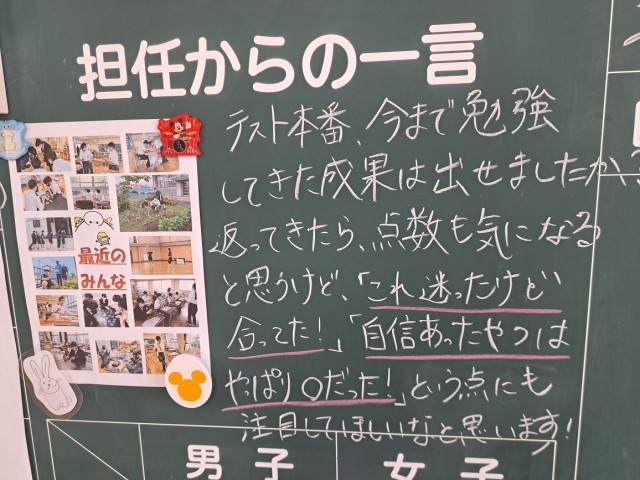 担任からの一言
テスト本番、今まで勉強
してきた成果は出せましたか?
返ってきたら、点数も気になる
と思うけど、「これ迷ったけど
合ってた!」「自信あったやつは
やっぱり○だった!」という点にも
注目してほしいなと思います!
最近の
みんな
男子
女子